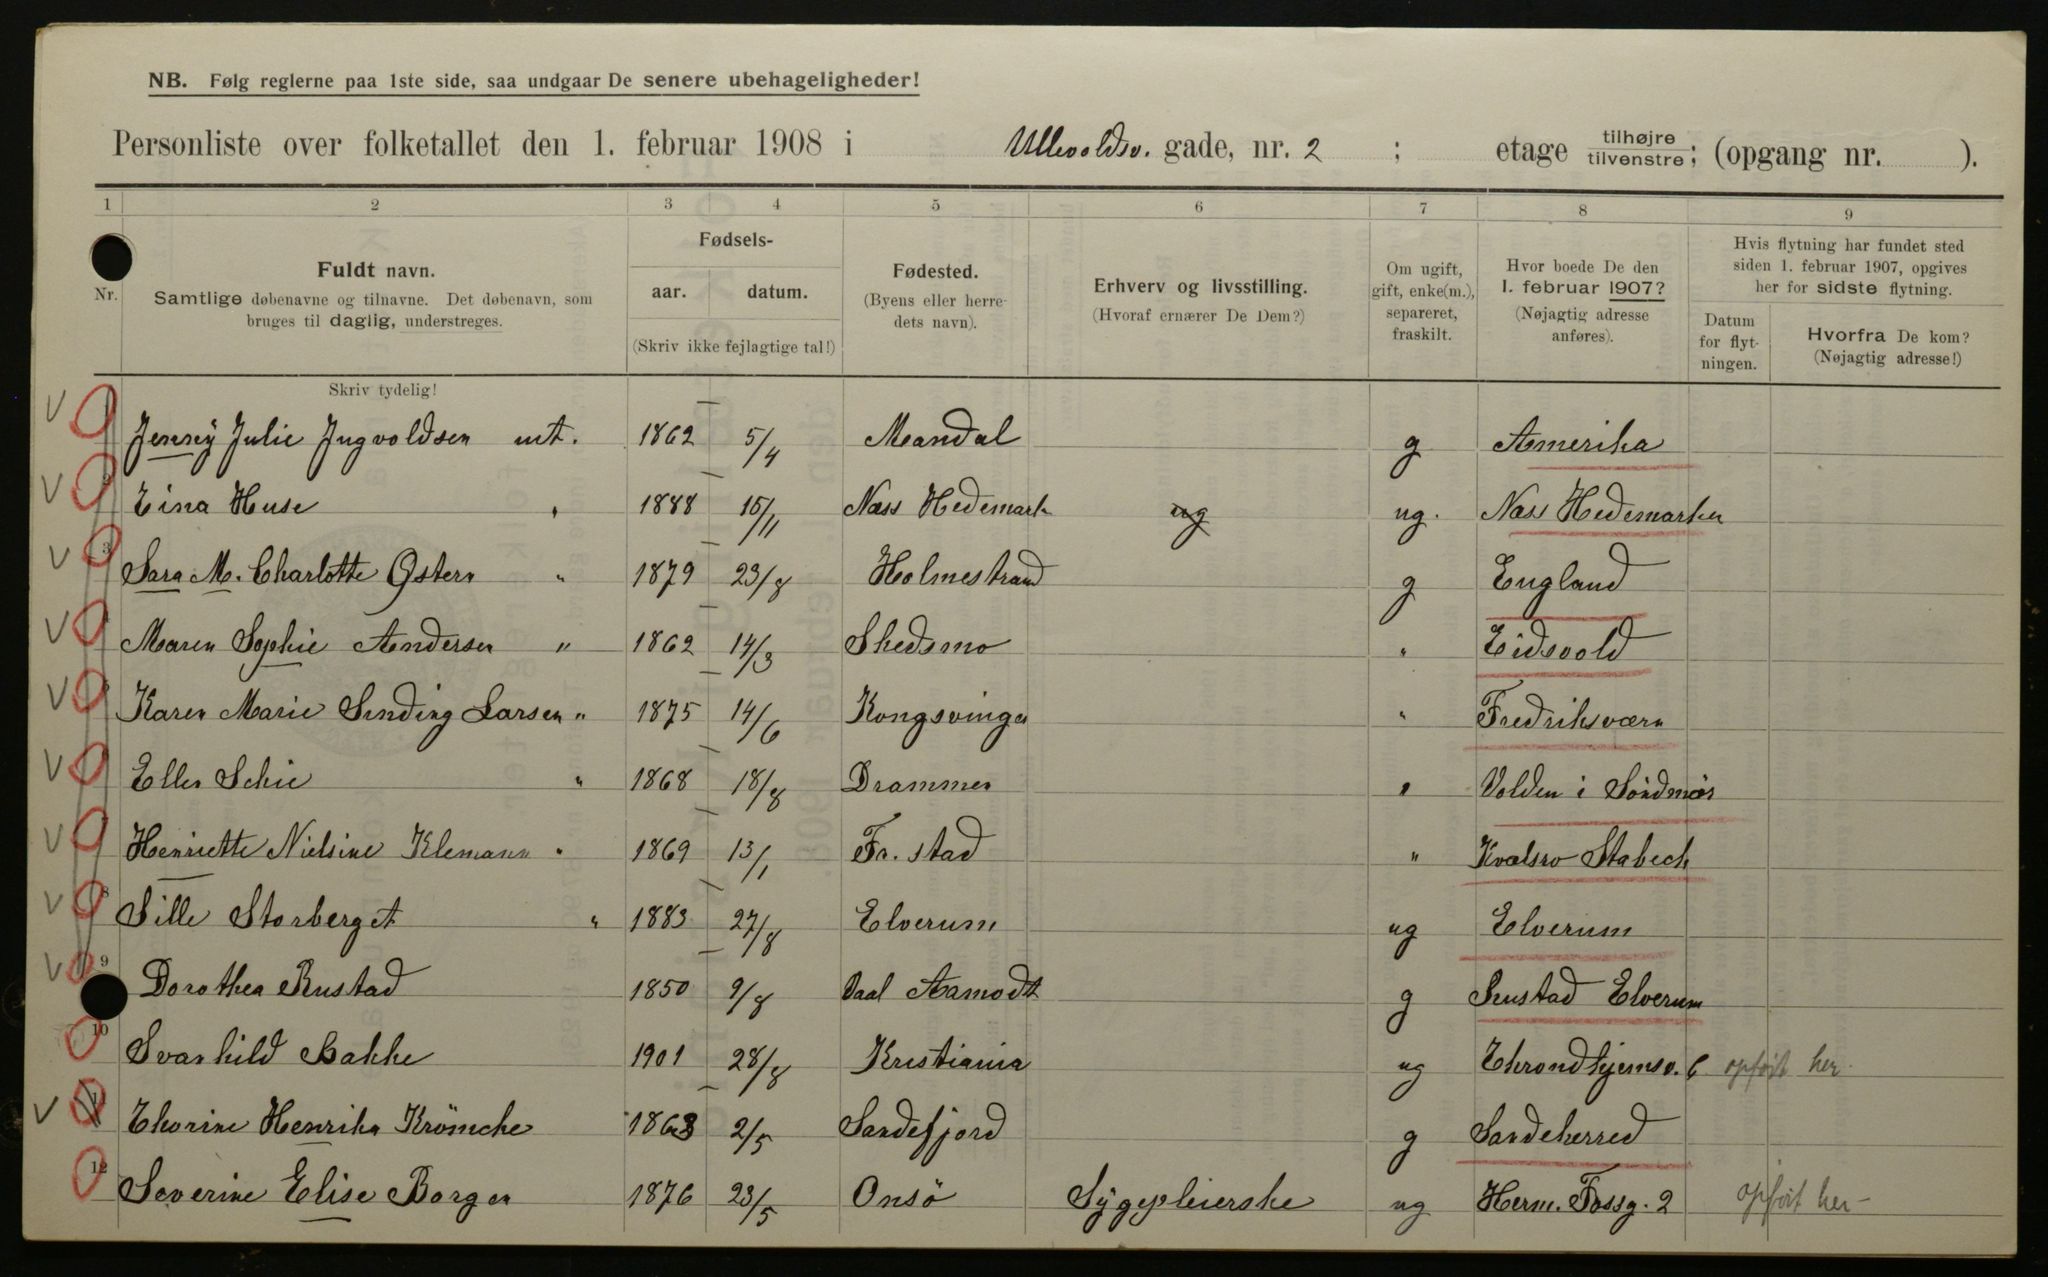 NB. Følg reglerne paa 1ste side, saa undgaar De senere ubehageligheder!
Personliste over folketallet den 1. februar 1908 i Ullevoldsv. gade, nr. 2 ; etage tilhøjre tilvenstre; (opgang nr. ).
1 2 3 4 5 6 7 8 9
Nr.
Fuldt navn.
Samtlige døbenavne og tilnavne. Det døbenavn, som
bruges til daglig, understreges.
Skriv tydelig!
Fødsels-
aar. datum.
(Skriv ikke fejlagtige tal!)
Fødested.
(Byens eller herre-
dets navn).
Erhverv og livsstilling.
(Hvoraf ernærer De Dem?)
Om ugift,
gift, enke(m.),
separeret,
fraskilt.
Hvor boede De den
1. februar 1907?
(Nøjagtig adresse
anføres).
Hvis flytning har fundet sted
siden 1. februar 1907, opgives
her for sidste flytning.
Datum
for flyt-
ningen.
Hvorfra De kom?
(Nøjagtig adresse!)
Jenny Julie Ingvoldsen mt. 1862 5/4 Mandal g Amerika
2 Eina Huse " 1888 15/11 Næss Hedemark ug ug. Næss Hedemarken
3 Sara M. Charlotte Østern " 1879 23/8 Holmestrand g England
Maren Sophie Andersen " 1862 14/3 Skedsmo " Eidsvold
5 Karen Marie Sinding Larsen " 1875 14/6 Kongsvinger " Fredriksværn
Ellen Schie " 1868 18/8 Drammen " Volden i Söndmör
7 Henriette Nielsine Klemann " 1869 13/1 Fr.stad " Kvalsro Stabech
8 Sille Storberget " 1883 27/8 Elverum ug Elverum
9 Dorothea Rustad 1850 9/8 Aamodt g Rustad Elverum
10 Svanhild Bakke 1901 28/8 Kristiania ug Throndhjemsv. 6 opført her
11 Thorine Henrika Krömcke 1863 2/5 Sandefjord g Sandeherred
12 Severine Elise Borgen 1876 23/5 Onsö Sygepleierske ug Herm. Fossg. 2 opført her